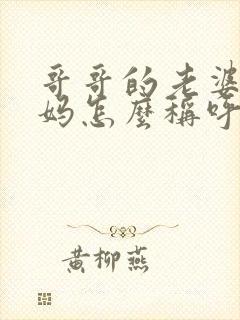 哥哥的老婆
妈怎麼稱呼
黄柳燕